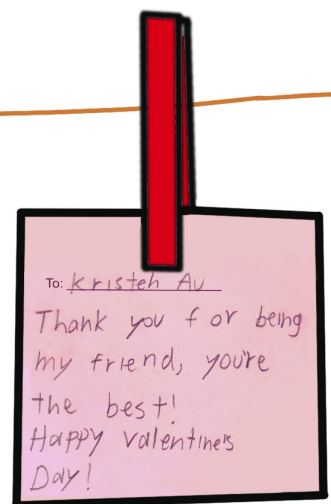 To: Kristen Au
Thank you for being
my friend, you're
the best!
Happy valentines
Day!